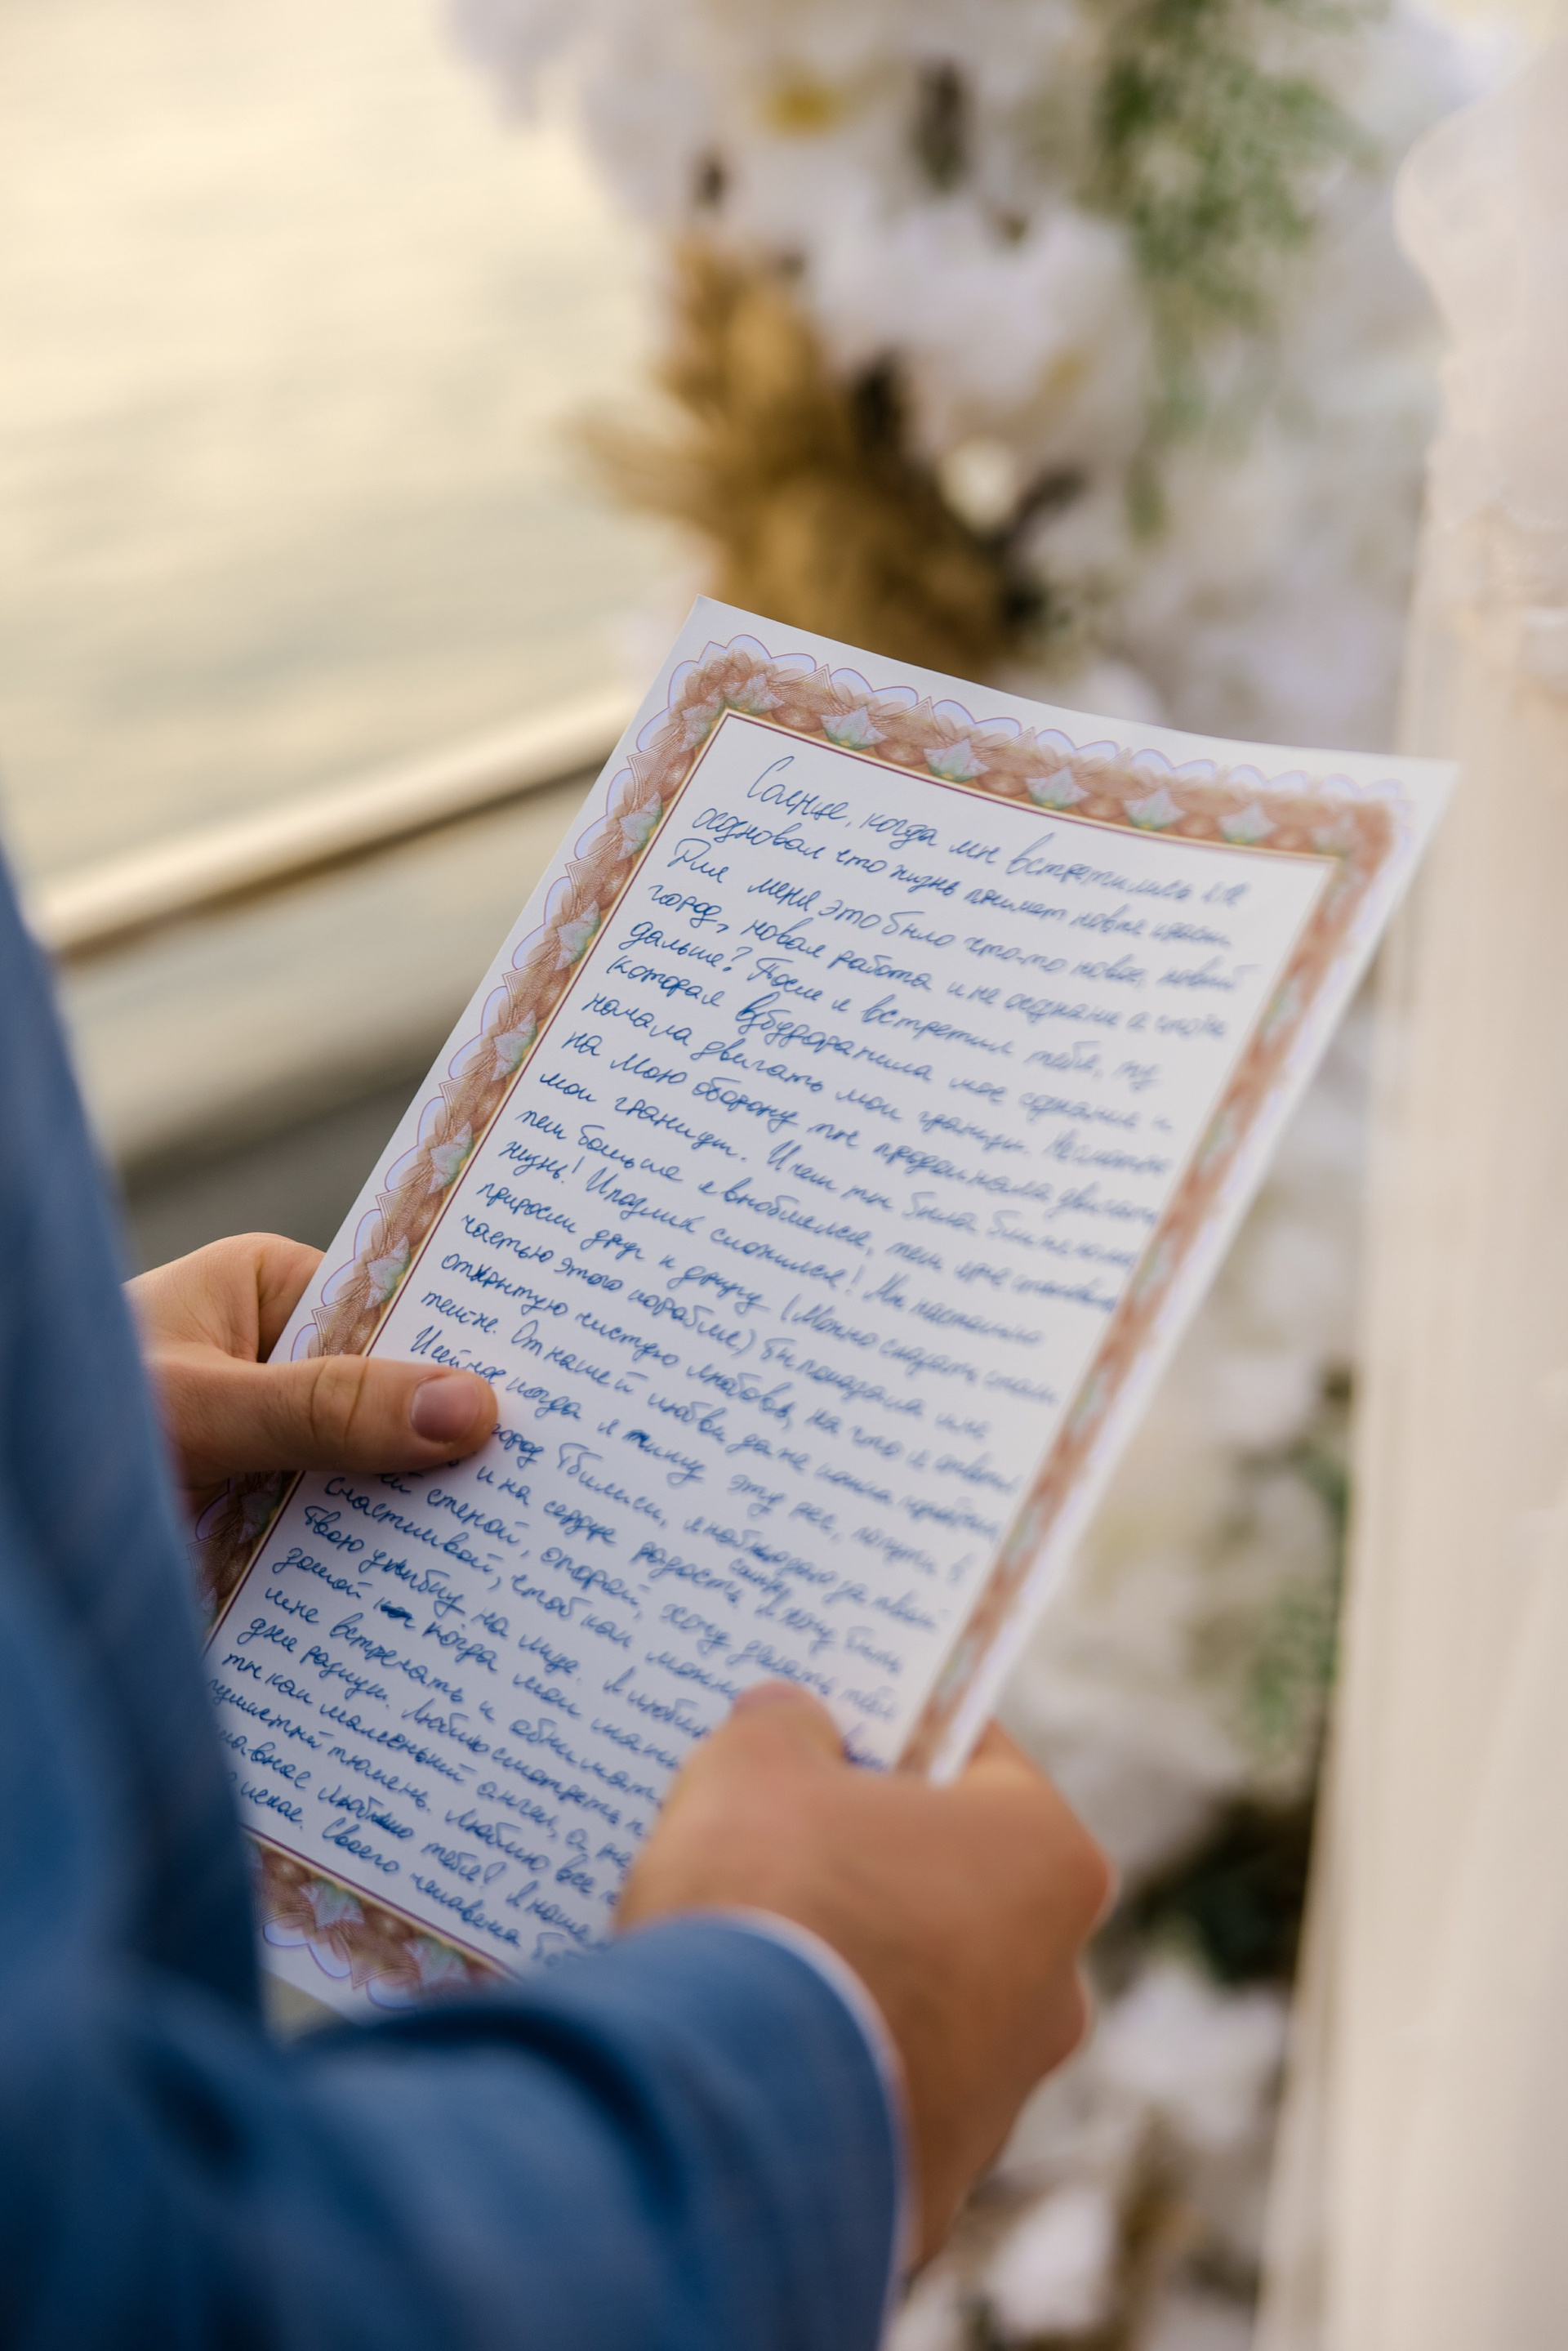 Солнце, когда мы встретились я не
осознавал что жизнь примет новые краски.
Для меня это было что-то новое, новый
город, новая работа и не осознание а что же
дальше? После я встретил тебя, ту
которая взбудоражила мое сознание и
начала двигать мои границы. Несмотря
на мою оборону ты продолжала двигать
мои границы. И чем ты была ближе ко мне
тем больше я влюблялся, тем ярче становилась
жизнь! И пазлик сложился! Мы настолько
приросли друг к другу (Можно сказать стали
частью этого корабля) Ты показала мне
открытую чистую любовь, на что и ответил
тем-же. От нашей любви даже кошка
Именно когда я пишу эту речь, летим в
город Тбилиси, я наблюдаю за твоим
и на сердце радость, я хочу быть
ей стеной, опорой, хочу делать тебя
счастливой, чтоб как можно
твою улыбку на лице. Я люблю
домой когда мои
мне встречать и обнимать
две разных. Люблю смотреть
ты как маленький ангел, а не
пушистый тюлень. Люблю все
люблю тебя! Я наше
искал. Своего человека